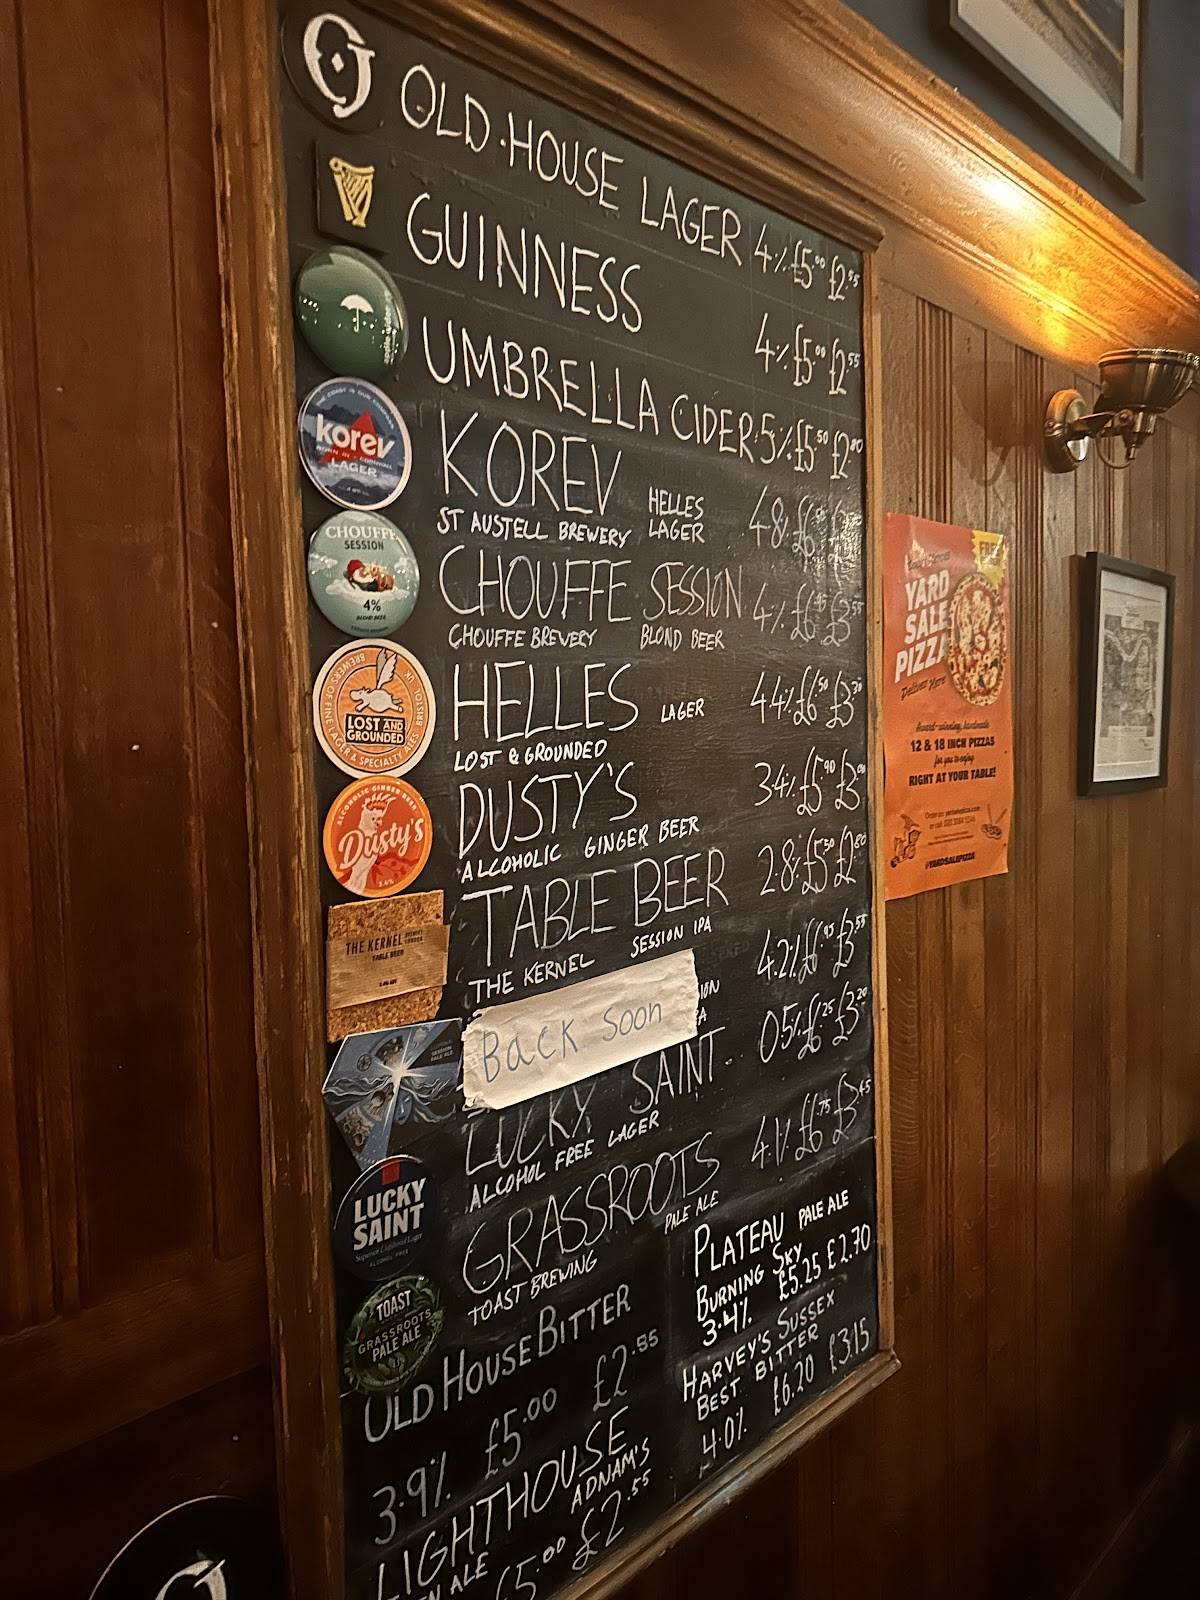 OLD HOUSE LAGER 4% £5.00 £2.55
GUINNESS 4% £5.00 £2.55
UMBRELLA CIDER 5% £5.50 £2.80
KOREV HELLES LAGER 4.8% £6
ST AUSTELL BREWERY
CHOUFFE SESSION 4% £6 £3.55
CHOUFFE BREWERY BLOND BEER
HELLES LAGER 4.4% £6.50 £3.30
LOST & GROUNDED
DUSTY'S 3.4% £5.90 £3.00
ALCOHOLIC GINGER BEER
TABLE BEER 2.8% £5.50 £2.80
THE KERNEL SESSION IPA
Back Soon 4.2% £6.95 £3.55
LUCKY SAINT 0.5% £6.25 £3.20
ALCOHOL FREE LAGER
GRASSROOTS 4.1% £6.75 £3.45
TOAST BREWING PALE ALE
OLD HOUSE BITTER
3.9% £5.00 £2.55
LIGHTHOUSE
ADNAM'S
ALE £5.00 £2.55
PLATEAU PALE ALE
BURNING SKY
3.4% £5.25 £2.70
HARVEY'S SUSSEX
BEST BITTER
4.0% £6.20 £3.15
korev
BORN IN CORNWALL
LAGER
CHOUFFE
SESSION
4%
BLOND BEER
BREWERS OF FINE LAGER & SPECIALTY ALES BRISTOL, UK
LOST AND
GROUNDED
ALCOHOLIC GINGER BEER
Dusty's
3.4%
THE KERNEL BREWERY LONDON
TABLE BEER
LUCKY
SAINT
Superior Unfiltered Lager
ALCOHOL FREE
TOAST
GRASSROOTS
PALE ALE
FREE
YARD
SALE
PIZZA
Delivers Here
Award-winning, handmade
12 & 18 INCH PIZZAS
for you to enjoy
RIGHT AT YOUR TABLE!
@YARDSALEPIZZA